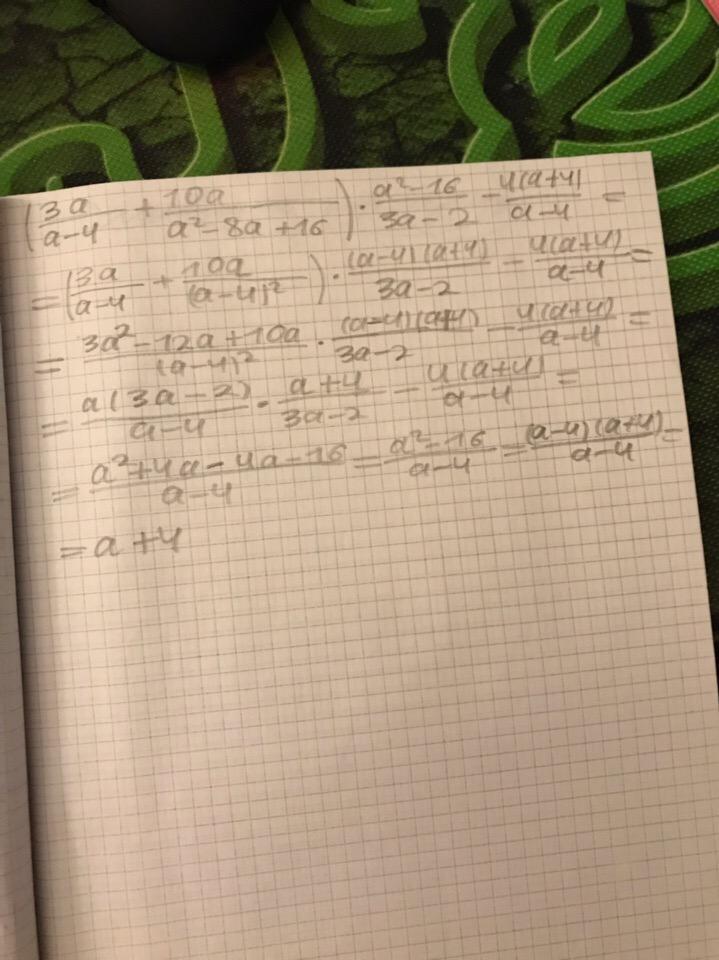 (3a/(a-4) + 10a/(a²-8a+16)) · (a²-16)/(3a-2) - 4(a+4)/(a-4) =
= (3a/(a-4) + 10a/(a-4)²) · (a-4)(a+4)/(3a-2) - 4(a+4)/(a-4) =
= (3a²-12a+10a)/(a-4)² · (a-4)(a+4)/(3a-2) - 4(a+4)/(a-4) =
= a(3a-2)/(a-4) · (a+4)/(3a-2) - 4(a+4)/(a-4) =
= (a²+4a-4a-16)/(a-4) = (a²-16)/(a-4) = (a-4)(a+4)/(a-4) =
= a+4